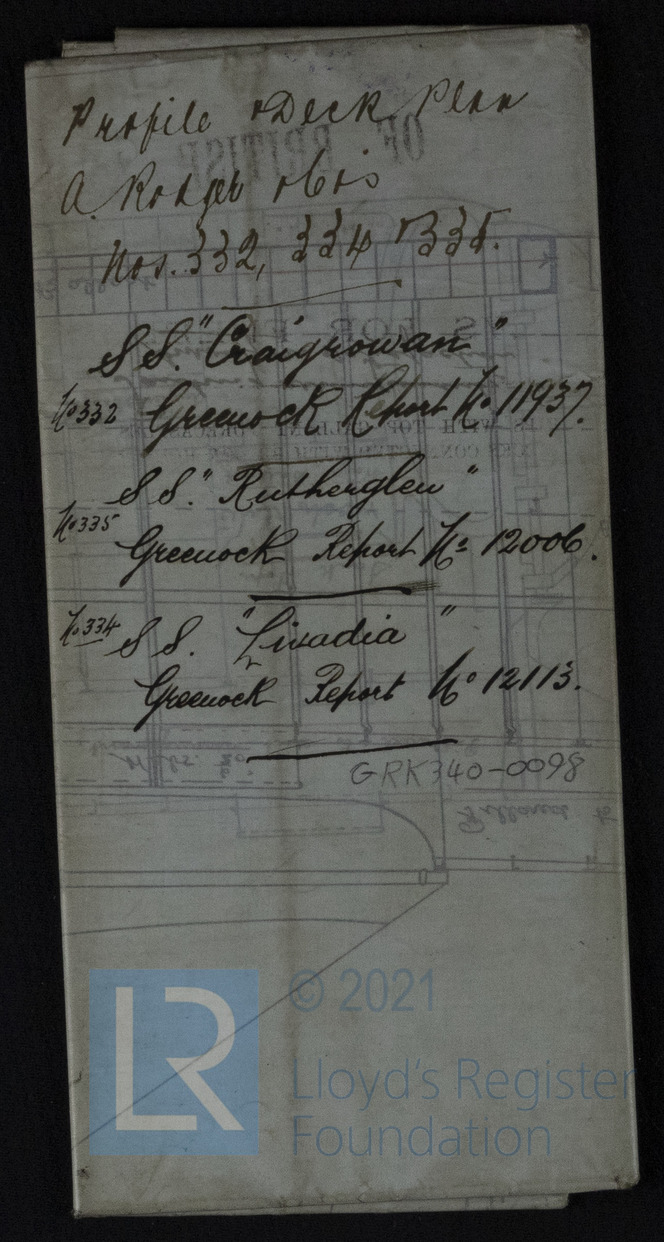 Profile & Deck Plan
A. Rodger & Co's
Nos. 332, 334 & 335.
S S. "Craigrowan"
No 332 Greenock Report No 11937.
S S. "Rutherglen"
No 335
Greenock Report No 12006.
No 334 S S. "Livadia"
Greenock Report No 12113.
GRK340-0098
LR
© 2021
Lloyd's Register
Foundation